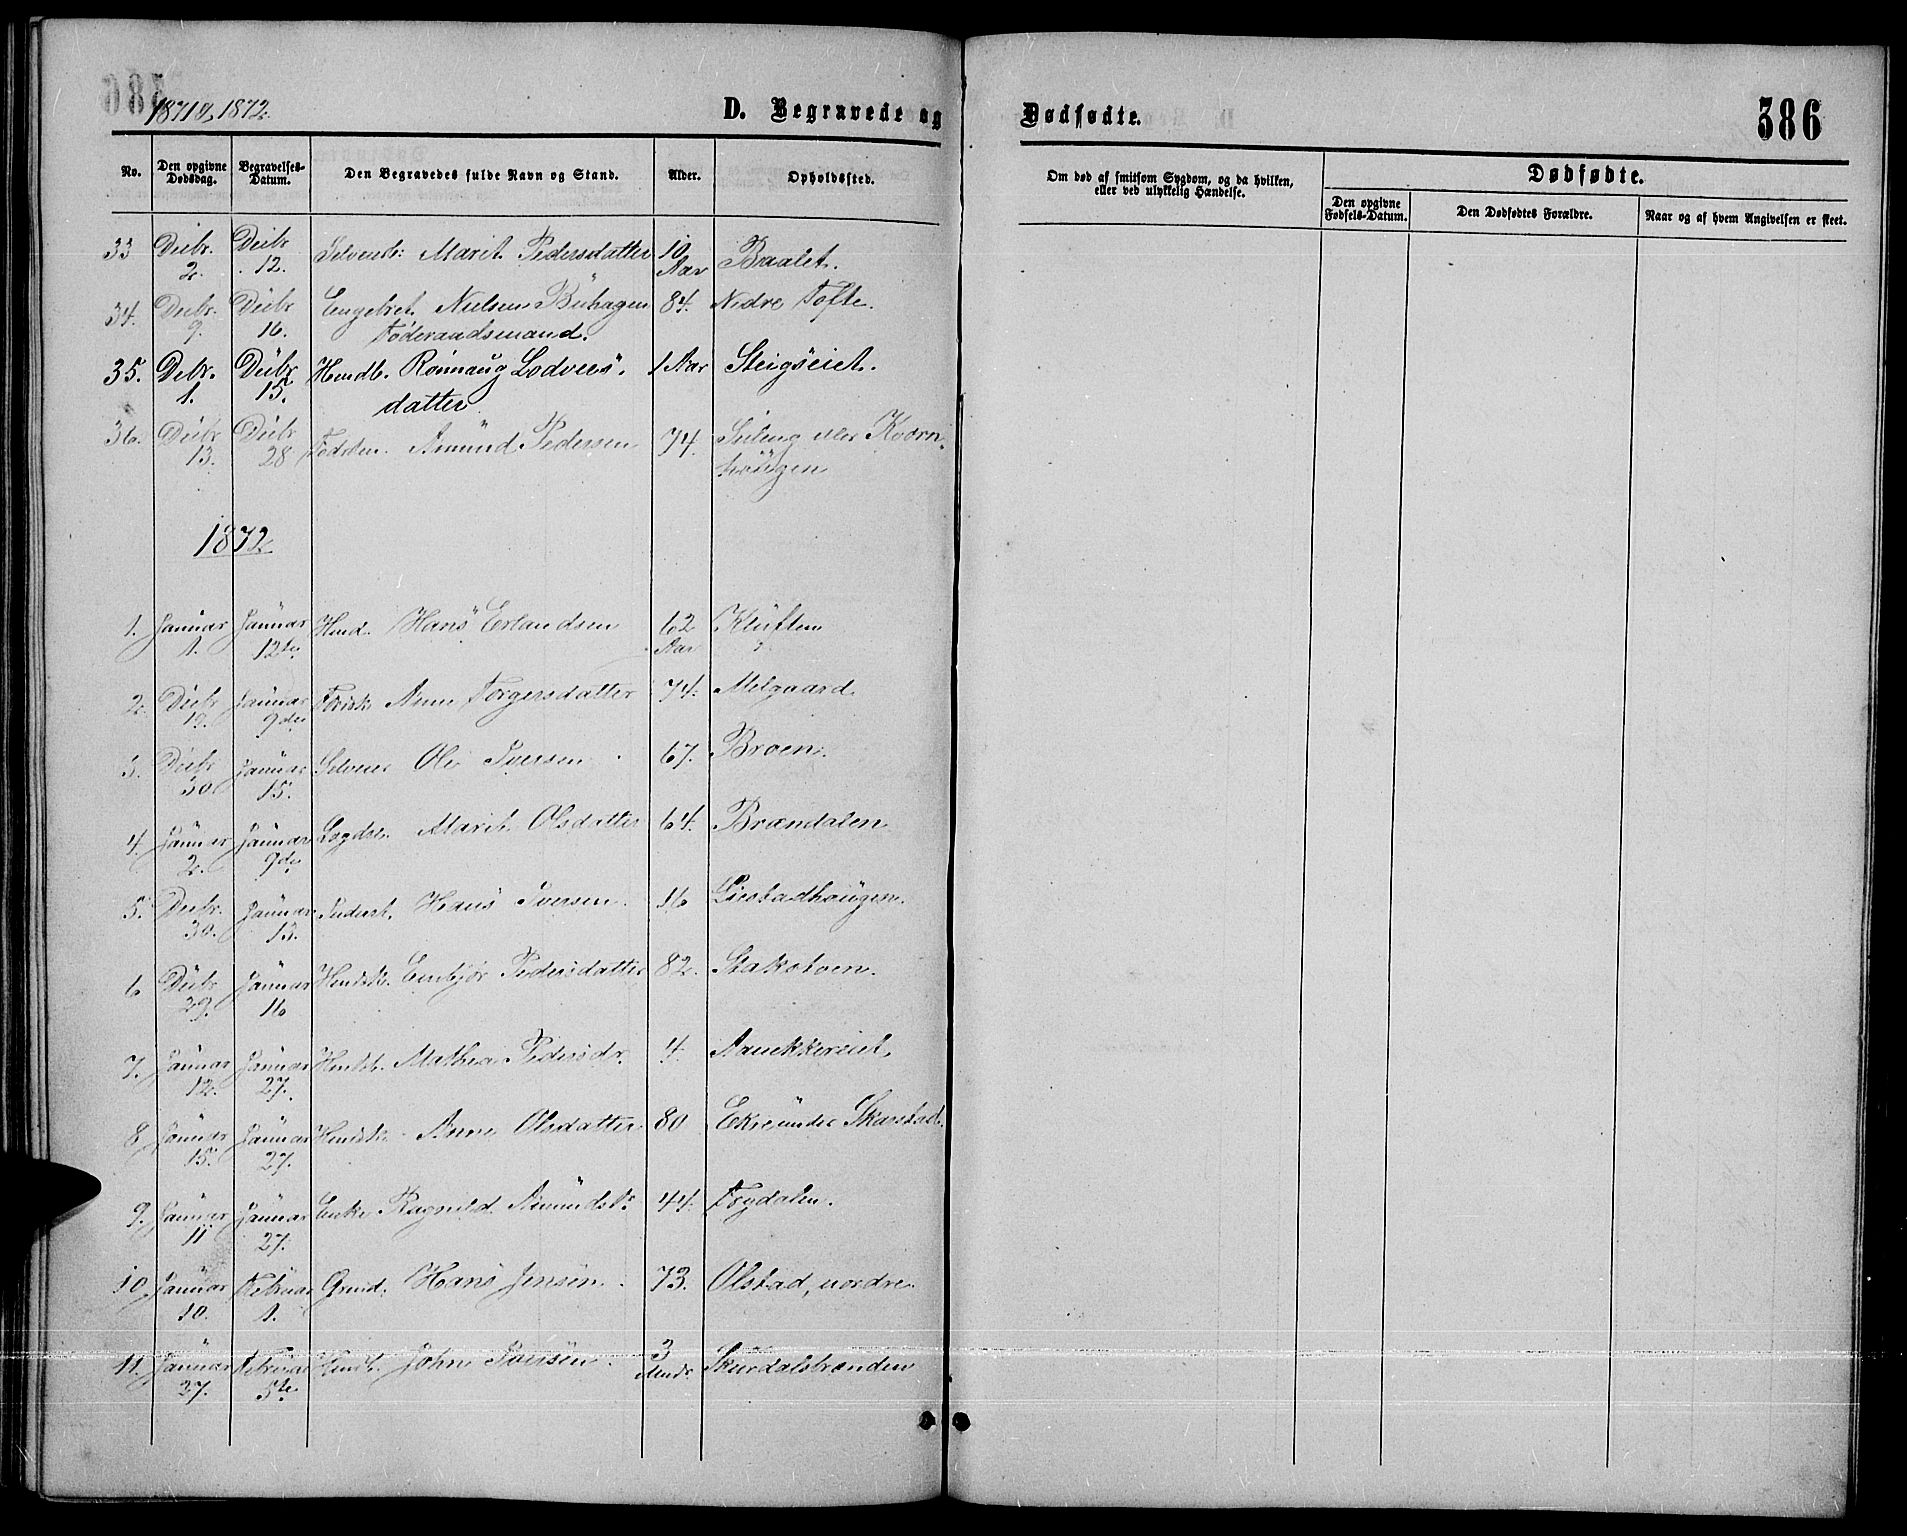 1871 & 1872.
D. Begravede og Dødfødte.
386
No.
Den opgivne Dødsdag.
Begravelses-Datum.
Den Begravedes fulde Navn og Stand.
Alder.
Opholdssted.
Om død af smitsom Sygdom, og da hvilken,
eller ved ulykkelig Hændelse.
Dødfødte.
Den opgivne Fødsels-Datum.
Den Dødfødtes Forældre.
Naar og af hvem Angivelsen er skeet.
33 Decbr. 2. Decbr 12. Marit Pedersdatter 10 Aar Baalet.
34. Decbr. 9. Decbr 16. Engebret Nielsen Buhagen 84. Nedre Tofte.
Føderaadsmand.
35. Debr. 1. Decbr 15. Huusb. Rønnaug Lodvers-
datter 1 Aar Steigseiet.
36. Decbr 13. Decbr 28 Amund Pedersen 74. eller Kværn-
hougen
1872
1. Januar 1. Januar 12te Hans Erlandsen 62 Aar Kluften
2. Decbr 19. Januar 9de Anne Torgersdatter 74. Melgaard
3. Decbr 30 Januar 15. Selveier Ole Iversen 67. Broen.
4. Januar 2. Januar 9de Marit Olsdatter 64. Brændalen
5. Decbr. 30. Januar 13. Hans Iversen. 16 Liestadhougen.
6 Decbr 29. Januar 16 Embjør Pedersdatter 82. Stakstoen.
7. Januar 12. Januar 27. Mathea Pedersdr. 4.
8 Januar 15. Januar 27. Anne Olsdatter 80 Ekre under Skarstad.
9. Januar 11 Januar 27. Enke Ragnild Amundsdr 44. Togdalen.
10. Januar 10. Februar 1. Hans Jensen. 73. Olstad, nordre.
11. Januar 27. Februar 5te John Iversen. 3 Mndr. Skurdalsbrænden